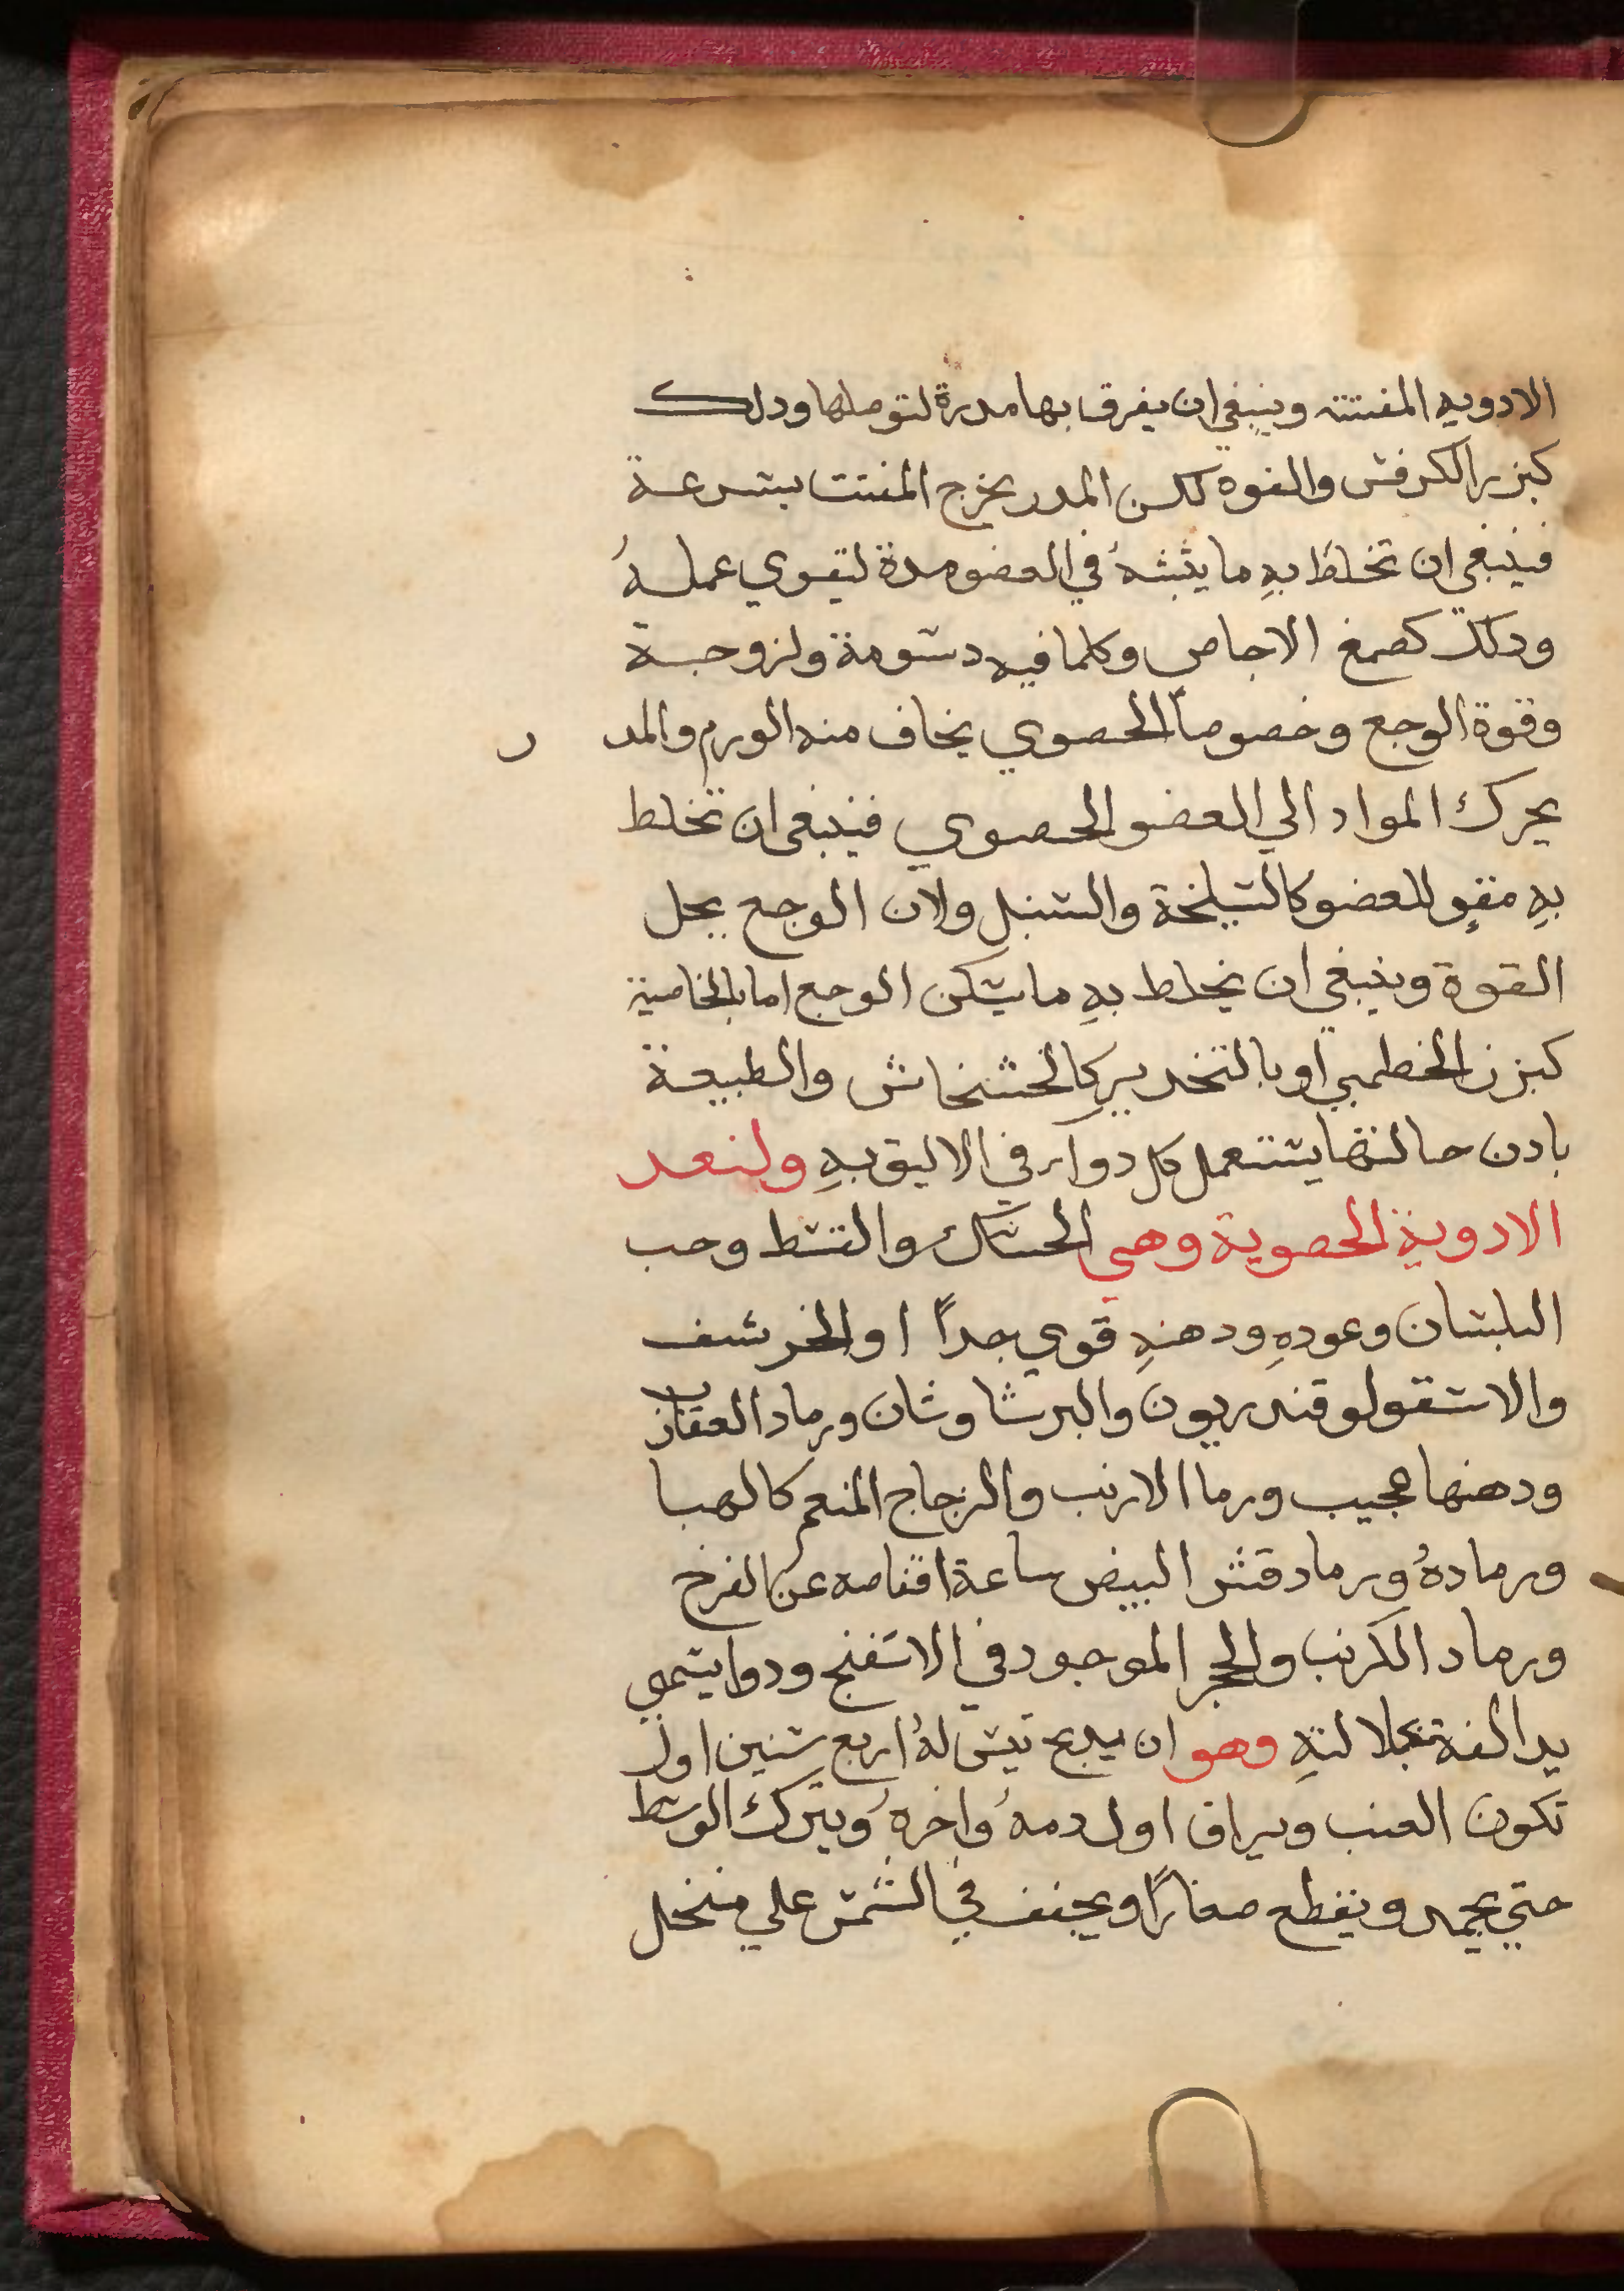 الادويه المفتته وينبغي ان يفرق بها مدرة لتوصلها ودلك
كبزر الكرفس والفوه لكن المدر يخرج المفتت بسرعة
فينبغي ان تخلط بهِ ما يثبتهُ في العضو مدة ليقوي عملهُ
ودلك كصمغ الاجاص وكلما فيه دسومة ولزوجة
وقوة الوجع وخصوصاً الحصوي يخاف منه الورم والمدر
يحرك المواد الي العضو الحصوي فينبغي ان تخلط
بهِ مقوٍ للعضو كالسليخة والسنبل ولان الوجع يحل
القوة وينبغي ان يخلط بهِ ما يسكن الوجع اما بالخاصية
كبزر الخطمي او بالتخدير كالخشخاش والطبيعة
بادن خالقها يستعمل كل دوا في الاليق بهِ ولنعد
الادوية الحصوية وهي الحسك والقسط وحب
البلسان وعودهِ ودهنهِ قوي جداً اوالخرشف
والاسقولوقندريون والبرشاوشان ورماد العقارب
ودهنها عجيب ورما الارنب والزجاج المنعم كالهبا
ورمادهُ ورماد قشر البيض ساعة اقفاصه عن الفرخ
ورماد الكرنب والحجر الموجود في الاسفنج ودوا يسمي
يد الله لجلالتهِ وهو ان يدبح تيس لهُ اربع سنين اول
تكون العنب ويراق اول دمهُ واخرهُ ويترك الوسط
حتي يجمد ويقطع صغاراً ويجفف في الشمس علي منخل